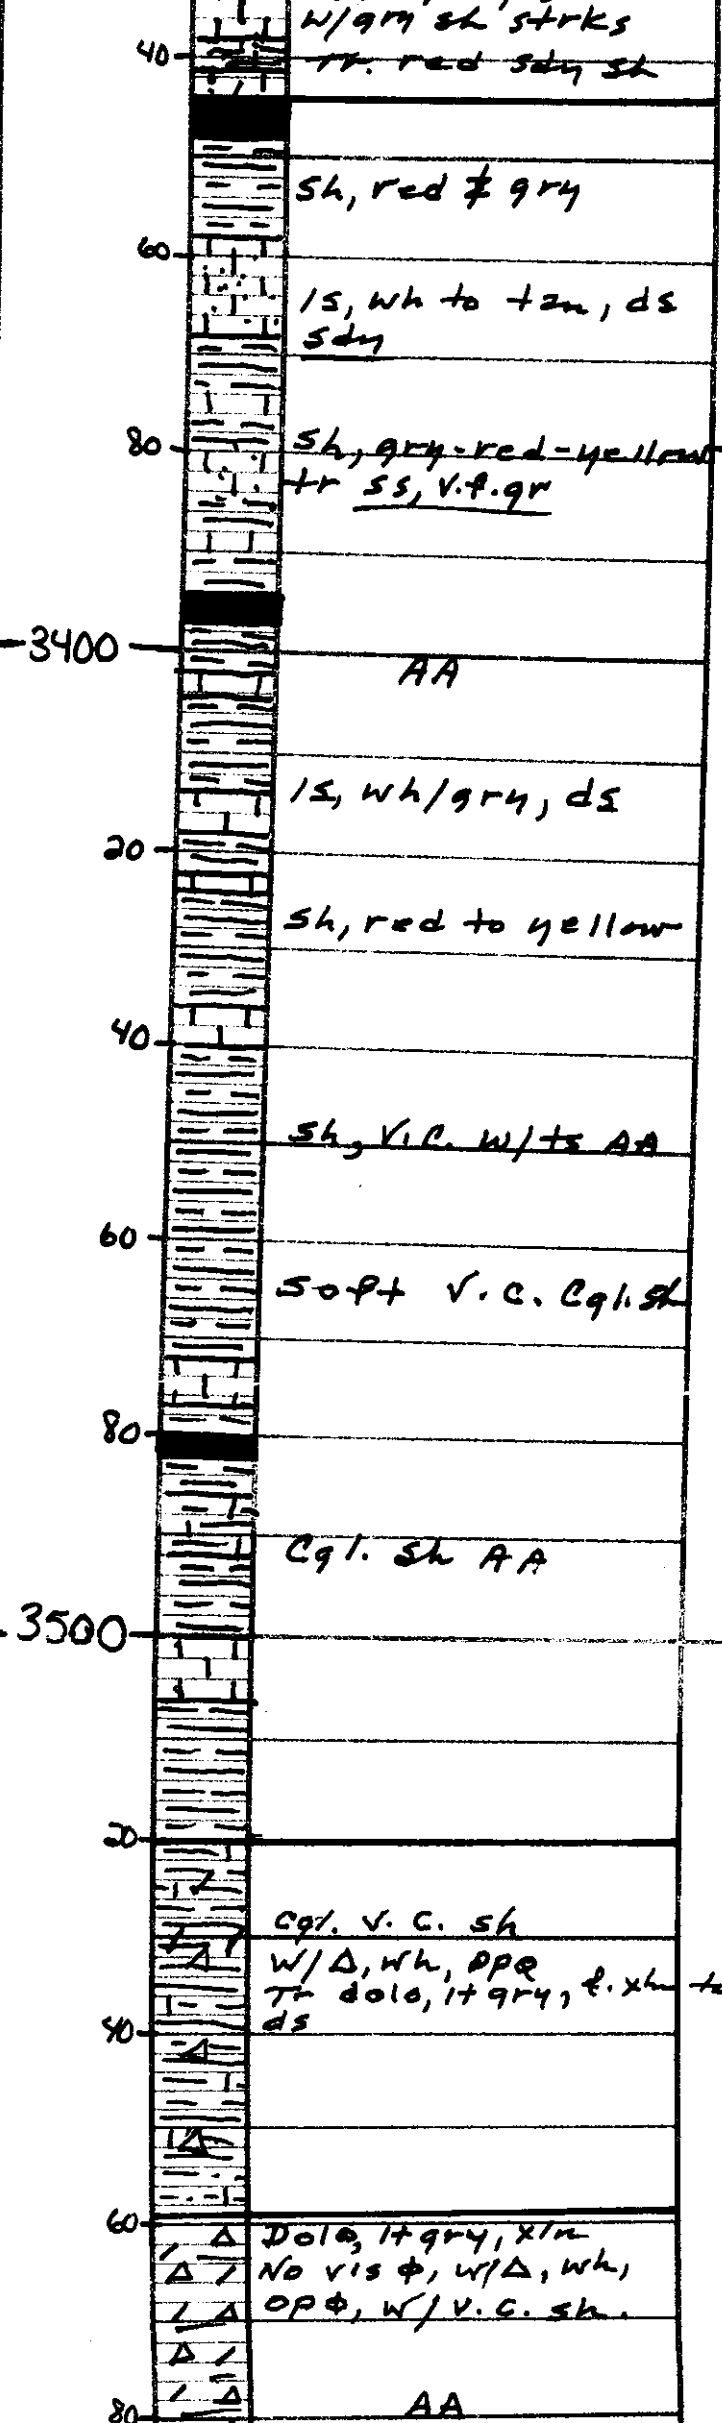 w/gry sh strks
40
Tr. red sdy sh
sh, red & gry
60
ls, wh to tan, ds
sdy
80
sh, gry-red-yellow
tr ss, v.f.gr
3400
AA
ls, wh/gry, ds
20
sh, red to yellow
40
sh, v.c. w/ ts AA
60
soft v.c. Cgl. sh
80
Cgl. sh AA
3500
20
Cgl. v.c. sh
w/Δ, wh, opq
Tr dolo, lt gry, f. xln to
40
ds
60
Dolo, lt gry, xln
No vis ϕ, w/Δ, wh,
opϕ, w/ v.c. sh.
80
AA